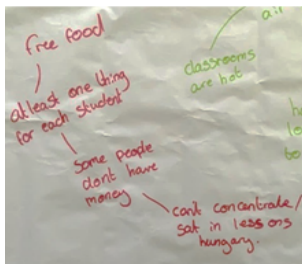 free food
at least one thing
for each student
some people
dont have
money
cant concentrate/
sat in lessons
hungary.
air
classrooms
are hot